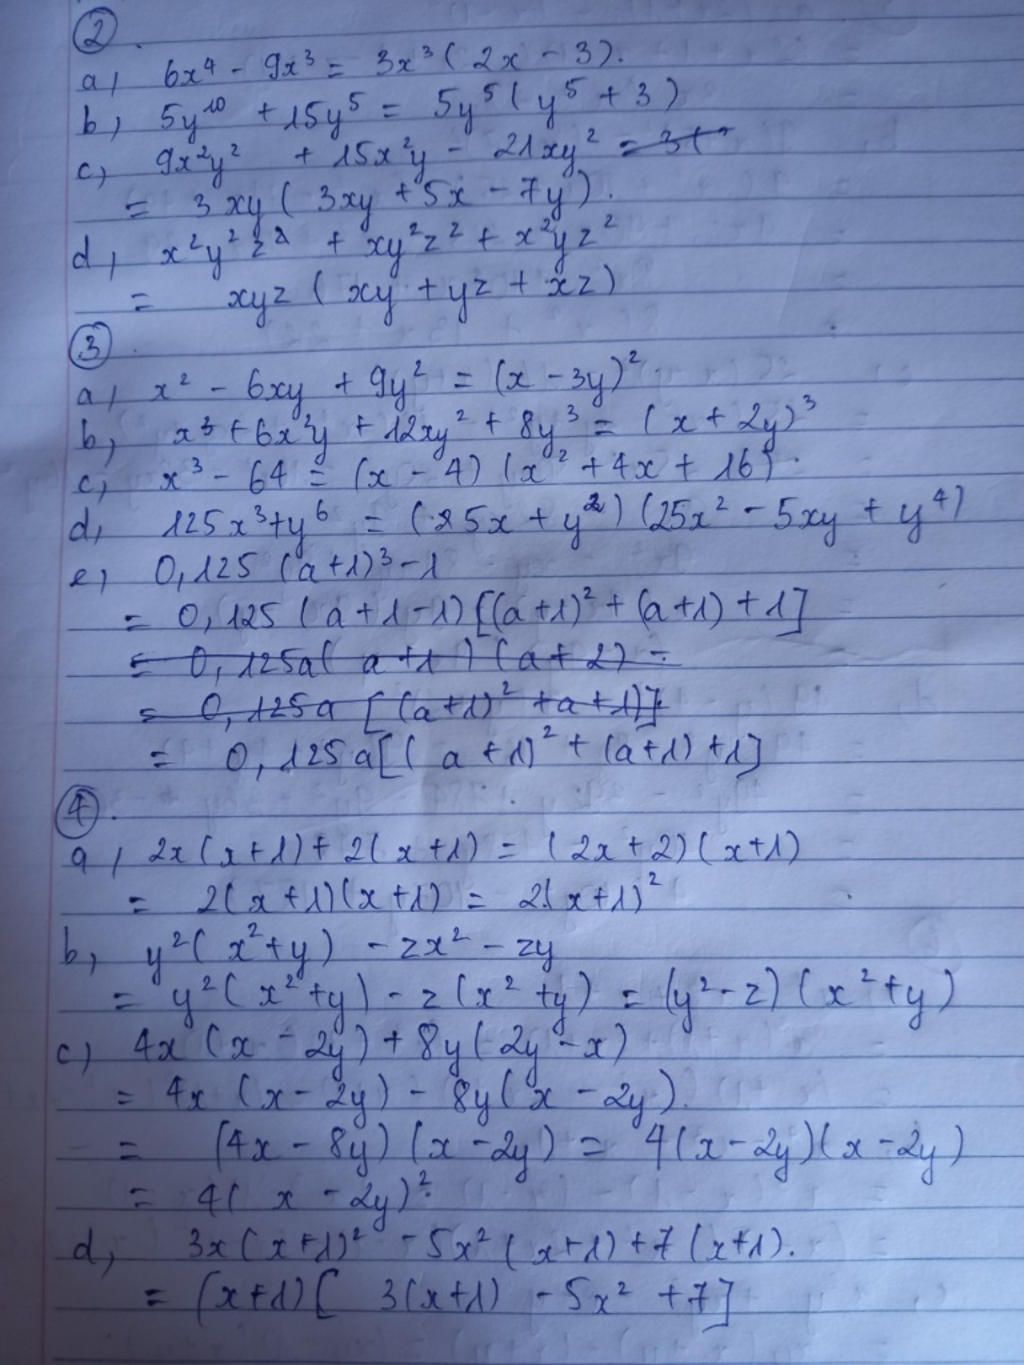 ②.
a, 6x⁴ - 9x³ = 3x³ ( 2x - 3 ).
b, 5y¹⁰ + 15y⁵ = 5y⁵ ( y⁵ + 3 )
c, 9x²y² + 15x²y - 21xy² = 3(
= 3xy ( 3xy + 5x - 7y ).
d, x²y²z² + xy²z² + x²yz²
= xyz ( xy + yz + xz )
③.
a, x² - 6xy + 9y² = (x - 3y)²
b, x³ + 6x²y + 12xy² + 8y³ = ( x + 2y )³
c, x³ - 64 = (x - 4) (x² + 4x + 16).
d, 125x³ + y⁶ = (25x + y²) (25x² - 5xy + y⁴)
e, 0,125 (a+1)³ - 1
= 0,125 ( a + 1 - 1) [(a+1)² + (a+1) + 1]
= 0,125a ( a + 1 ) ( a + 2 ) =
= 0,125a [(a+1)² + a + 1)]
= 0,125a[( a + 1)² + (a+1) + 1]
④.
a, 2x(x+1) + 2( x+1) = ( 2x + 2) ( x+1)
= 2( x+1)(x+1) = 2( x+1)²
b, y² ( x² + y) - zx² - zy
= y² ( x² + y) - z (x² + y) = (y² - z) ( x² + y)
c) 4x (x - 2y) + 8y ( 2y - x)
= 4x (x - 2y) - 8y ( x - 2y).
= (4x - 8y) (x - 2y) = 4(x - 2y)(x - 2y)
= 4( x - 2y)².
d, 3x (x+1)² - 5x² ( x+1) + 7 (x+1).
= (x+1) [ 3(x+1) - 5x² + 7]